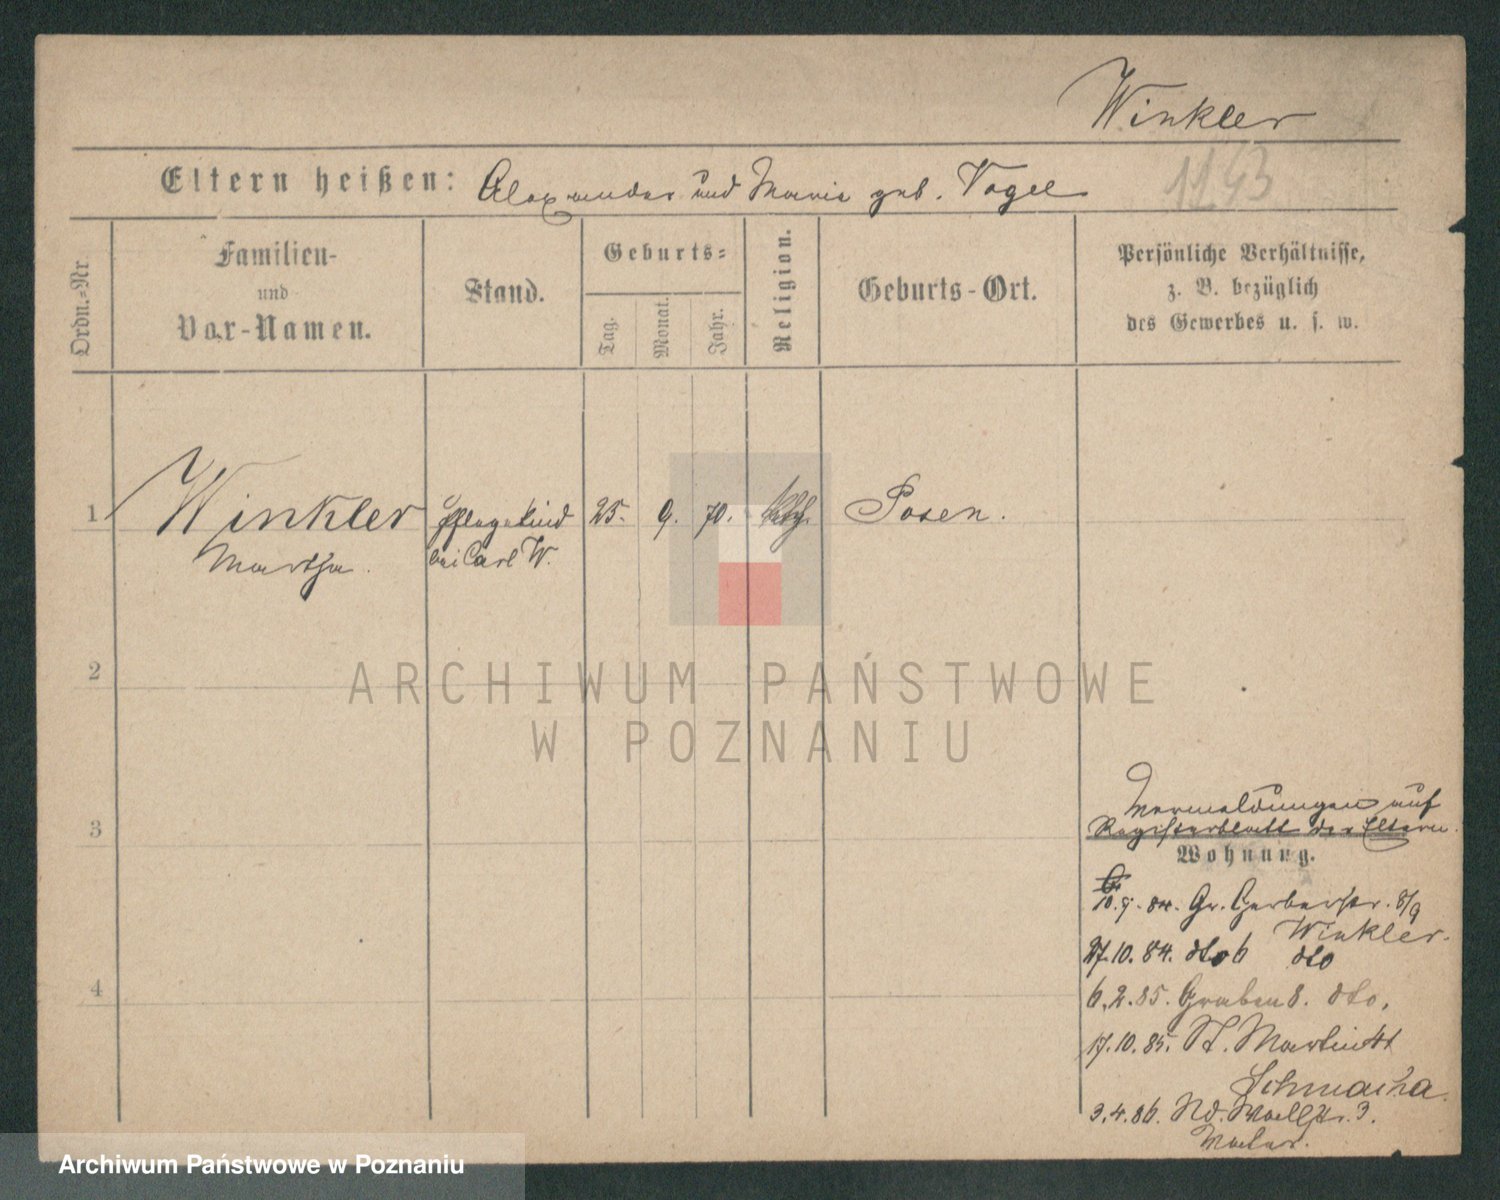 Winkler
Eltern heißen: Alexander und Marie geb. Vogel
1143
Ordn.-Nr.
Familien-
und
Vor-Namen.
Stand.
Geburts-
Tag.
Monat.
Jahr.
Religion.
Geburts-Ort.
Persönliche Verhältnisse,
z. B. bezüglich
des Gewerbes u. s. w.
1 Winkler Pflegekind 25. 9. 70. kth. Posen.
Martha. bei Carl W.
2
3
4
auf
Registerblatt der Eltern.
Wohnung.
10.9.84. Gr. Gerberstr. 8/9
Winkler.
27.10.84. dto 6 dto
6.2.85. Graben 8. dto.
17.10.85. St. Martin 41
3.4.86. Nd. Wallstr. 3.
ARCHIWUM PAŃSTWOWE
W POZNANIU
Archiwum Państwowe w Poznaniu